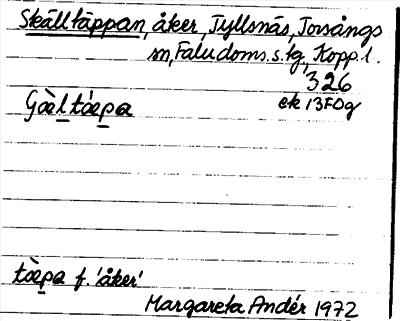 Skälltäppan, åker, Tyllsnäs, Torsångs
sn, Faludoms. s. tg, Kopp. l.
326
ek 13F0g
Gàl̲tàp̲a
tàp̲a f. 'åker'
Margareta Andér 1972